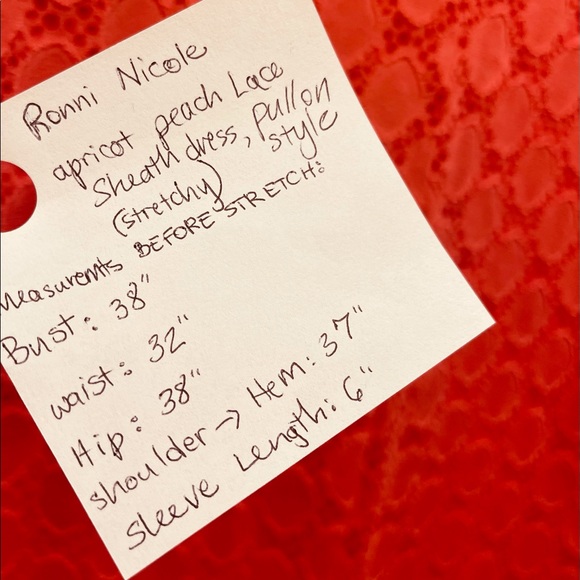 Ronni Nicole
apricot peach Lace
Sheath dress, Pull on
(stretchy) style
Measuremts BEFORE STRETCH:
Bust: 38"
waist: 32"
Hip: 38"
shoulder→ Hem: 37"
sleeve Length: 6"